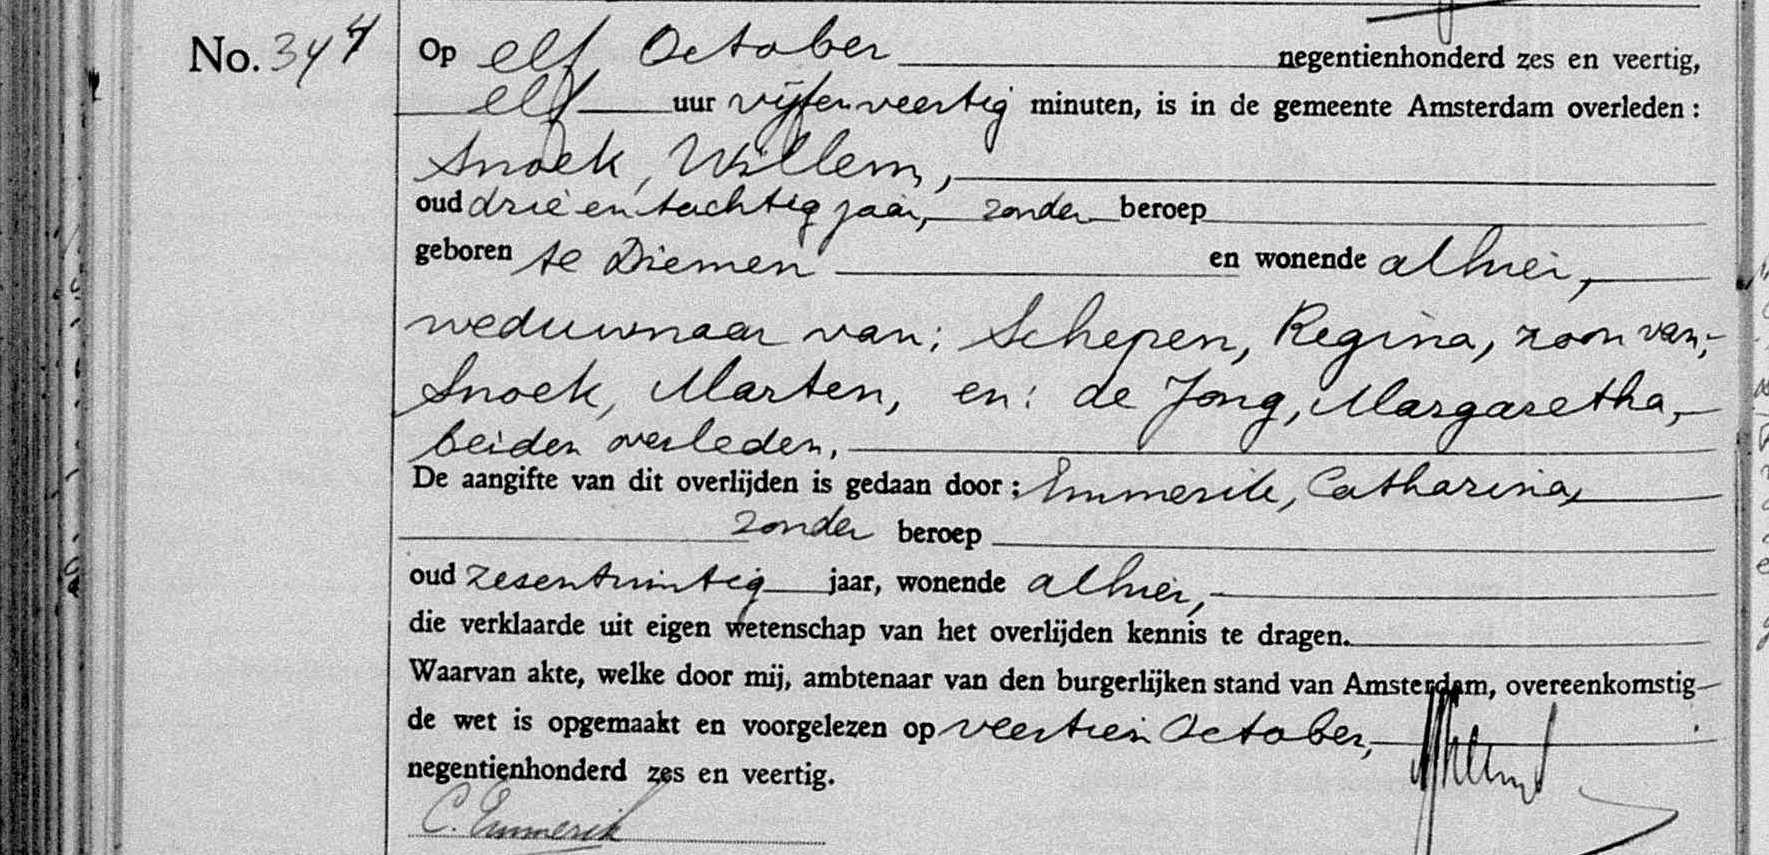 No. 344
Op elf October negentienhonderd zes en veertig,
elf uur vijfenveertig minuten, is in de gemeente Amsterdam overleden:
Snoek, Willem,
oud drie en tachtig jaar, zonder beroep
geboren te Diemen en wonende alhier,
weduwnaar van: Schepen, Regina, zoon van:
Snoek, Marten, en: de Jong, Margaretha,
beiden overleden.
De aangifte van dit overlijden is gedaan door: Emmerik, Catharina,
zonder beroep
oud zesentwintig jaar, wonende alhier,
die verklaarde uit eigen wetenschap van het overlijden kennis te dragen.
Waarvan akte, welke door mij, ambtenaar van den burgerlijken stand van Amsterdam, overeenkomstig
de wet is opgemaakt en voorgelezen op veertien October,
negentienhonderd zes en veertig.
C. Emmerik